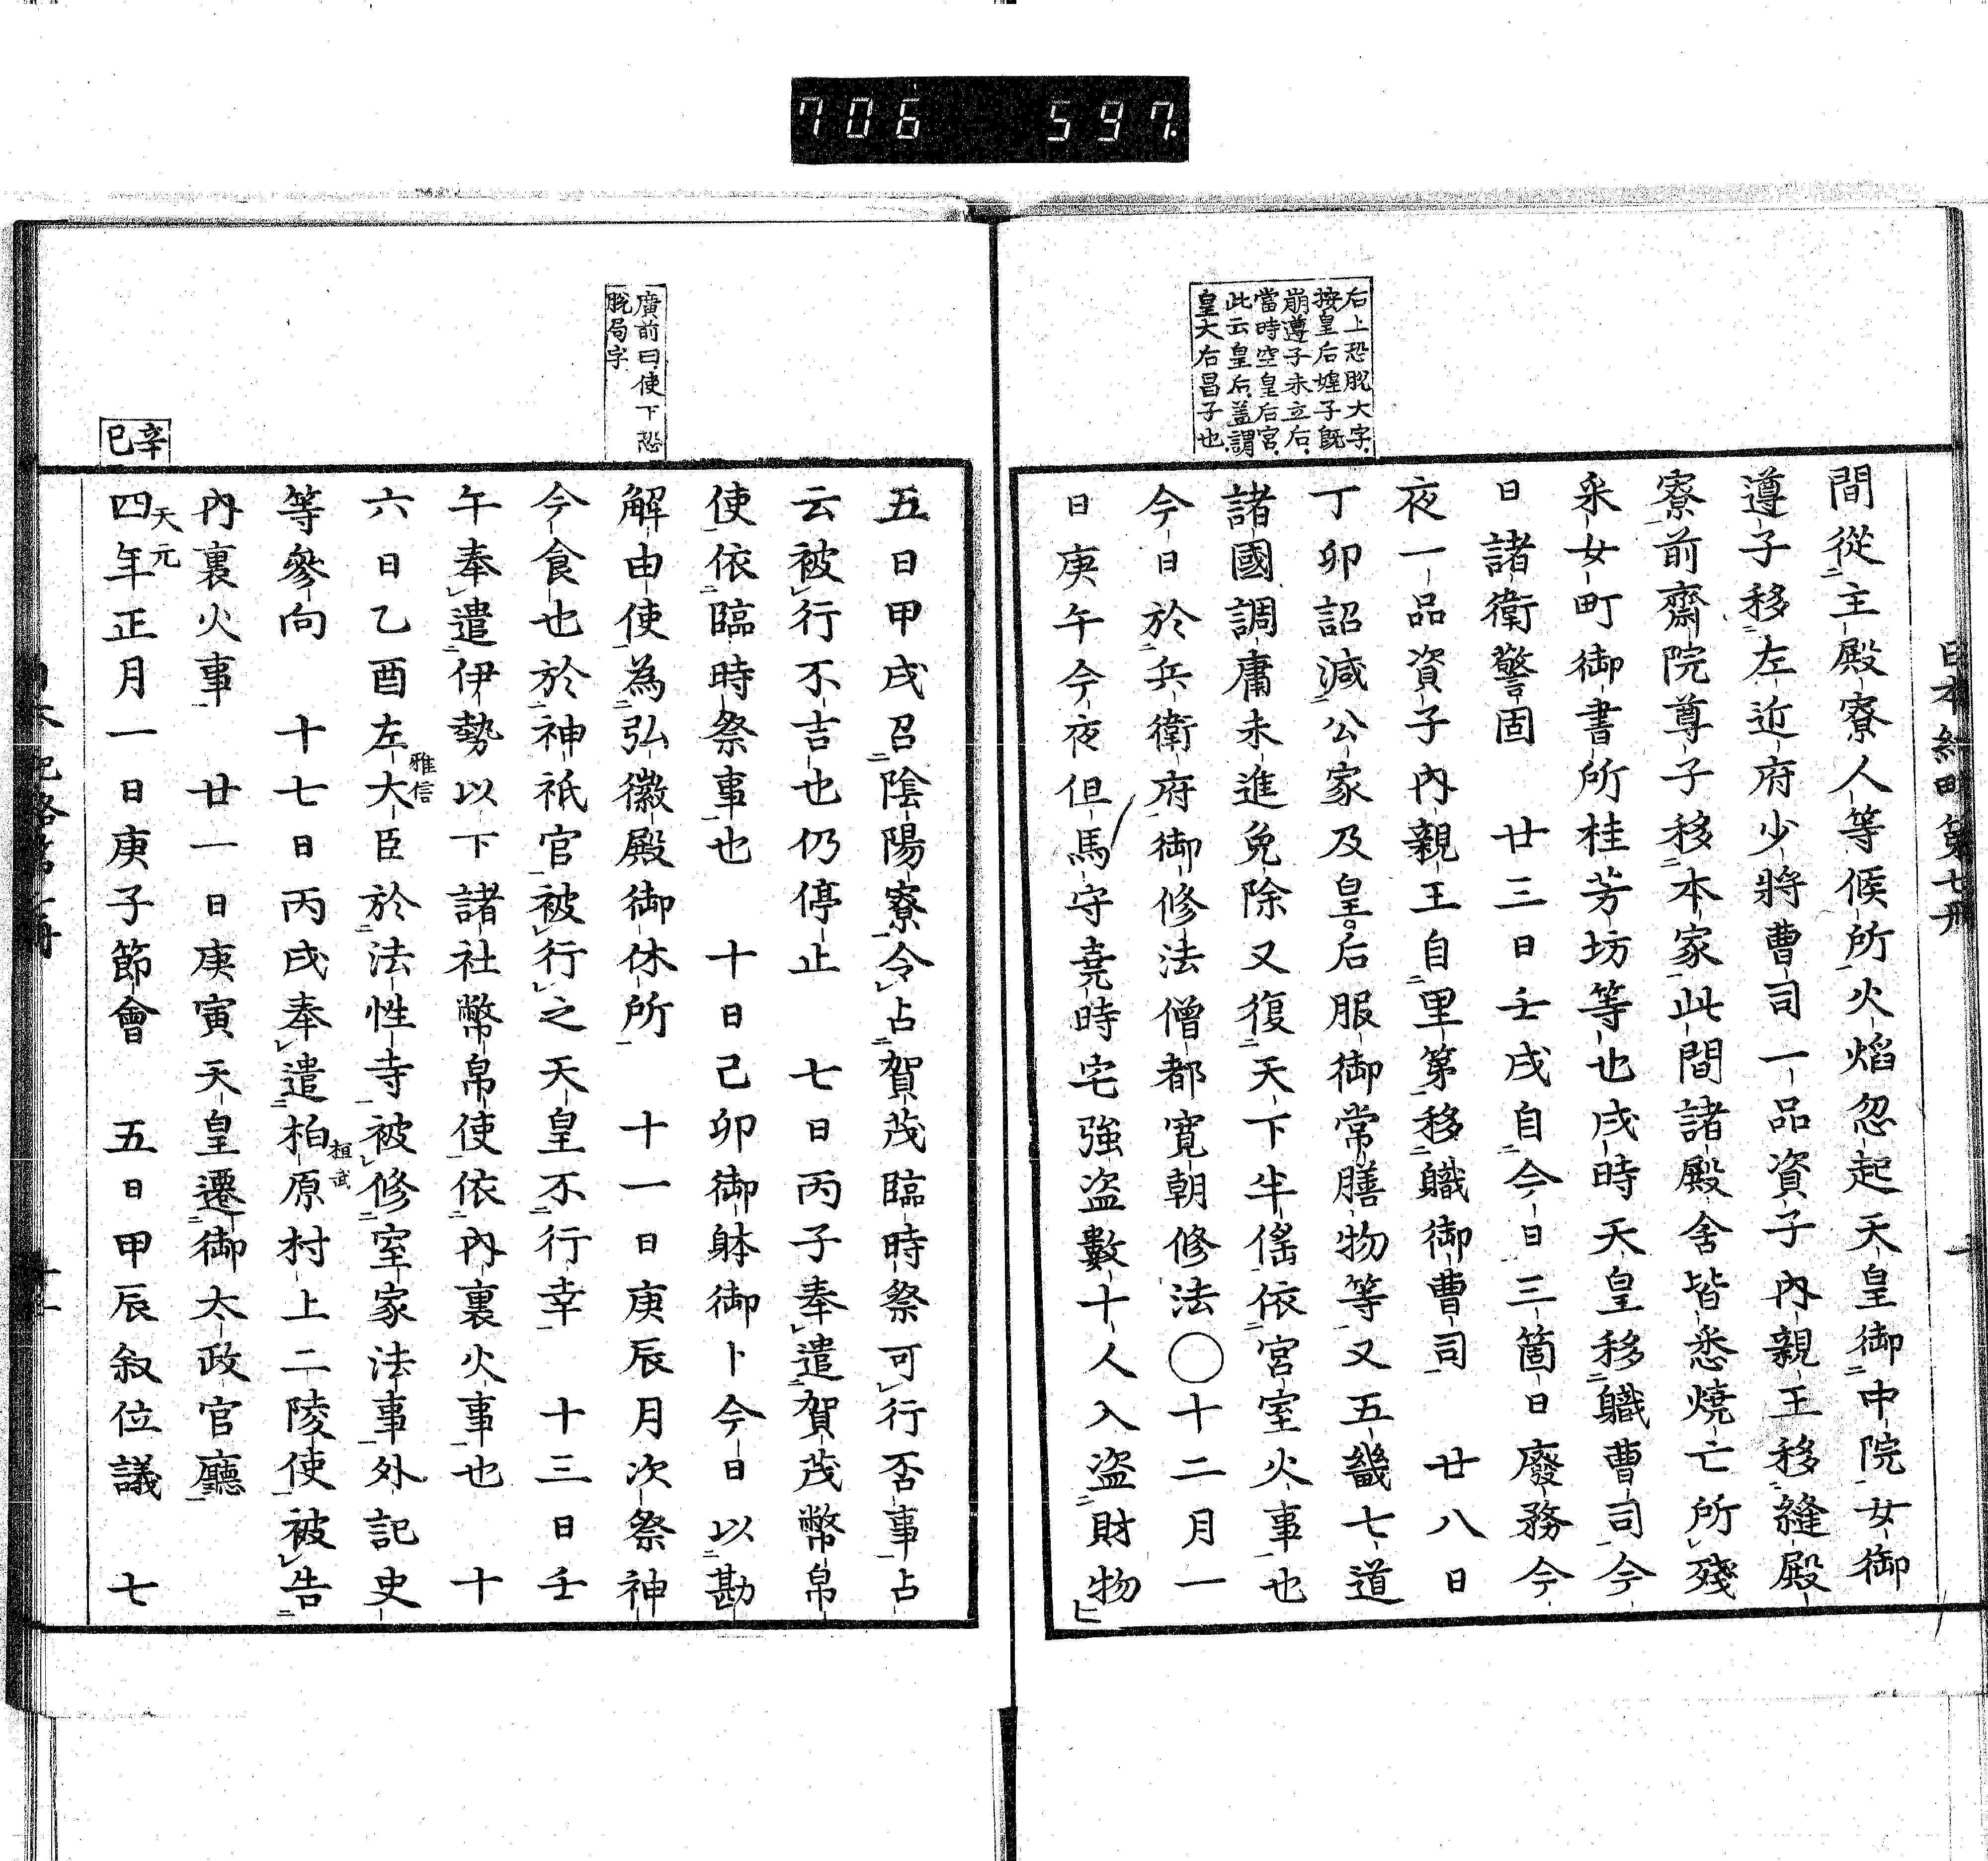 706 597
日本紀略第七冊
后上恐脫大字
按皇后媓子既
崩遵子未立后
當時空皇后宮
此云皇后蓋謂
皇大右昌子也
間從主殿寮人等候所火焰忽起天皇御中院女御
遵子移左近府少將曹司一品資子內親王移縫殿
寮前齋院尊子移本家此間諸殿舍皆悉燒亡所殘
采女町御書所桂芳坊等也戌時天皇移職曹司今
日諸衛警固 廿三日壬戌自今日三箇日廢務今
夜一品資子內親王自里第移職御曹司 廿八日
丁卯詔減公家及皇后服御常膳物等又五畿七道
諸國調庸未進免除又復天下半徭依宮室火事也
今日於兵衛府御修法僧都寬朝修法○十二月一
日庚午今夜但馬守堯時宅強盜數十人入盜財物
廣前曰使下恐
脫局字
五日甲戌召陰陽寮令占賀茂臨時祭可行否事占
云被行不吉也仍停止 七日丙子奉遣賀茂幣帛
使依臨時祭事也 十日己卯御躰御卜今日以勘
解由使為弘徽殿御休所 十一日庚辰月次祭神
今食也於神祇官被行之天皇不行幸 十三日壬
午奉遣伊勢以下諸社幣帛使依內裏火事也 十
六日乙酉左大臣雅信於法性寺被修室家法事外記史
等參向 十七日丙戌奉遣柏原桓武村上二陵使被告
內裏火事 廿一日庚寅天皇遷御太政官廳
辛巳
天元四年正月一日庚子節會 五日甲辰叙位議 七